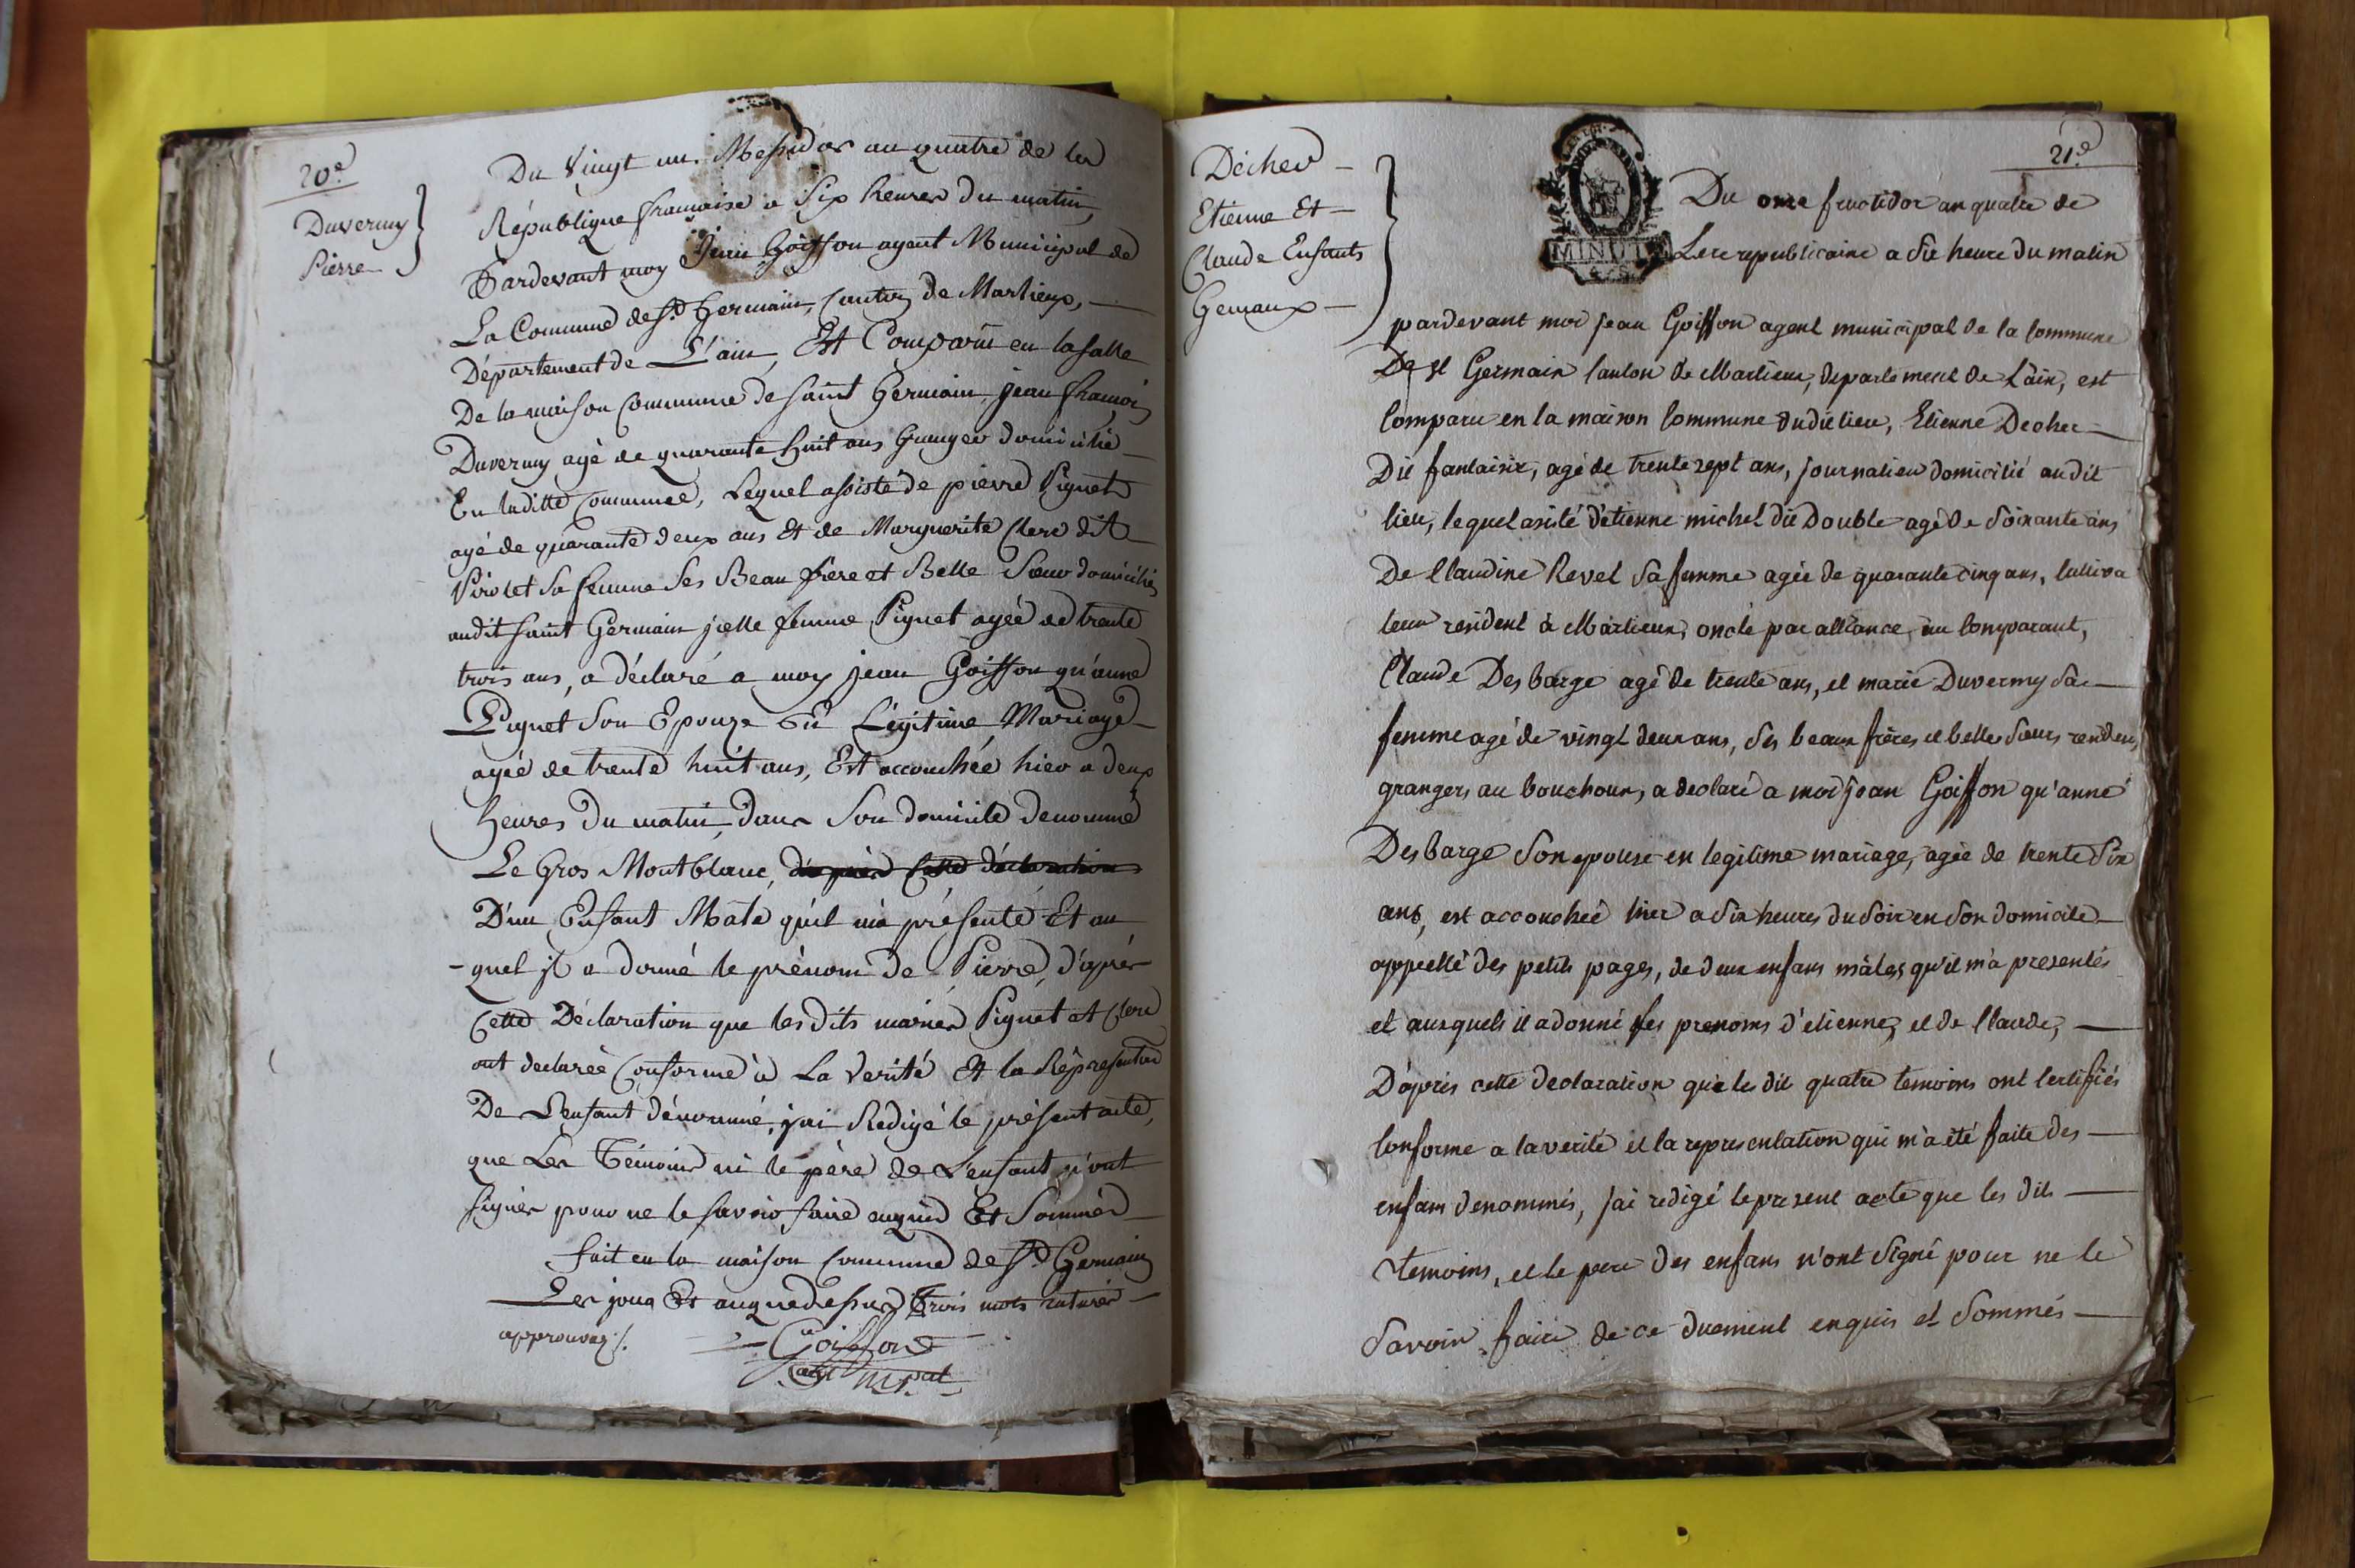 20e
Duvernay
Pierre
Du Vingt un Messidor an quatre de la
République française à Six heures du matin,
Pardevant moy Jean Goiffon agent Municipal de
La Commune de St Germain, Canton de Marlieux,
Département de L'ain, Est Comparu en la salle
De la maison Commune de saint Germain, jean françois
Duvernay agé de quarante huit ans Granger domicilié
En laditte Commune, Lequel assisté de pierre Piguet
agé de quarante deux ans Et de Marguerite Clerc dit
Virolet Sa femme Ses Beau frère et Belle Sœur domiciliés
audit saint Germain jcelle femme Piguet agée de trente
trois ans, a déclaré a moy jean Goiffon qu'anne
Piguet Son Epouze En Légitime Mariage
agée de trente huit ans, Est accouchée hier a deux
heures du matin, dans Son domicile denommé
Le Gros Montblanc, d'après Cette déclaration
D'un Enfant Mâle qu'il m'a présenté Et au
-quel jl a donné le prénom de Pierre, d'après
Cette Déclaration que les dits mariés Piguet et Clerc
ont declarée Conforme à La Verité Et la Répresentation
De L'enfant dénommé, j'ai Redigé le présent acte,
que Les Témoins ni le père de L'enfant n'ont
signés pour ne le savoir faire enquis Et Sommés
fait en la maison commune de St Germain
Les jour Et an que dessus Trois mots raturés
approuvés ./.
Goiffon
agt mpal
21e
Décher
Etienne Et
Claude Enfants
Gemaux
MINUTE
Du onze fructidor an quatre de
L'ere republicaine a Six heure du matin
pardevant moi jean Goiffon agent municipal de la Commune
De st Germain Canton de Marlieux, departement de L'ain, est
Comparu en la maison Commune dudit lieu, Etienne Decher
Dit fantaisie, agé de trente sept ans, journalier domicilié audit
lieu, lequel asisté d'etienne michel dit Double agé de Soixante ans
De Claudine Revel Sa femme agée de quarante cinq ans, Cultiva
teur resident à Marlieux, oncle par alliance, au Comparant,
Claude Desbarge agé de trente ans, et marie Duvernay Sa
femme agé de vingt deux ans, Ses beaux frères et belles Sœurs residens
grangers au bouchoux, a declaré a moi jean Goiffon qu'anne
Desbarge Son epouse en legitime mariage, agée de trente Six
ans, est accouchée hier a Six heures du Soir en Son domicile
appellé des petits pages, de deux enfans mâles qu'il m'a presentés
et auxquels il a donné les prenoms d'etienne, et de Claude,
D'après cette declaration que les dit quatre temoins ont Certifiés
Conforme a la verité et la representation qui m'a été faite des
enfans denommés, j'ai redigé le present acte que les dits
temoins, et le pere des enfans n'ont Signé pour ne le
Savoir faire de ce duement enquis et Sommés